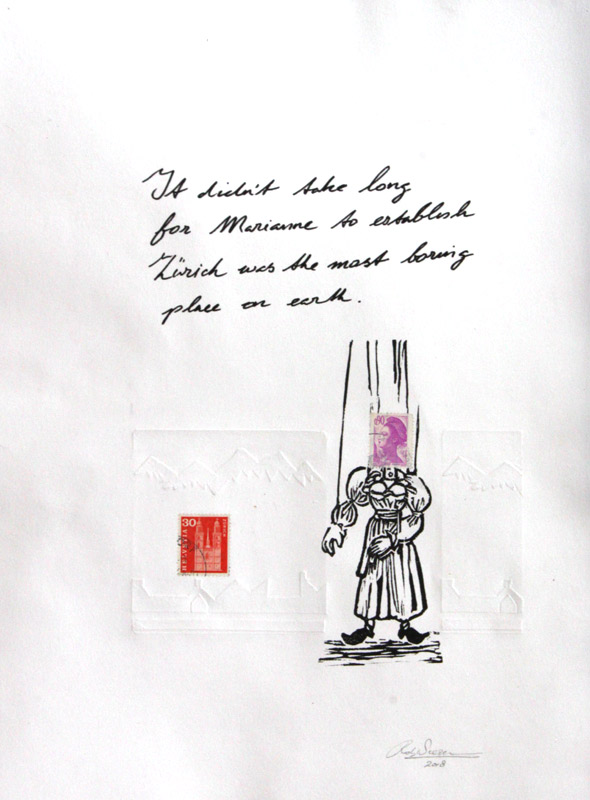 It didn't take long
for Marianne to establish
Zürich was the most boring
place on earth.
0,90
30
HELVETIA
2018